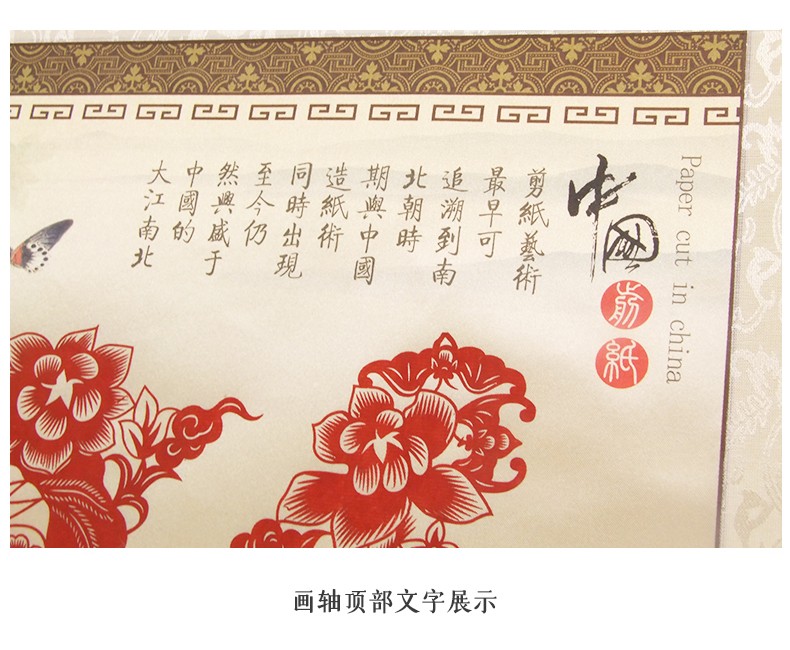 Paper cut in china
中國
剪紙
剪紙藝術
最早可
追溯到南
北朝時
期與中國
造紙術
同時出現
至今仍
然興盛于
中國的
大江南北
画轴顶部文字展示